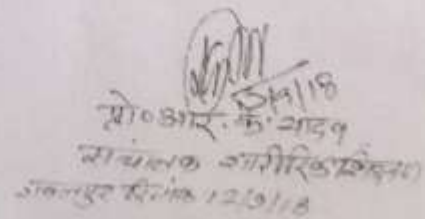 5/9/18
प्रो०आर. के. यादव
संचालक शारीरिक शिक्षण
जबलपुर दिनांक 12/9/18